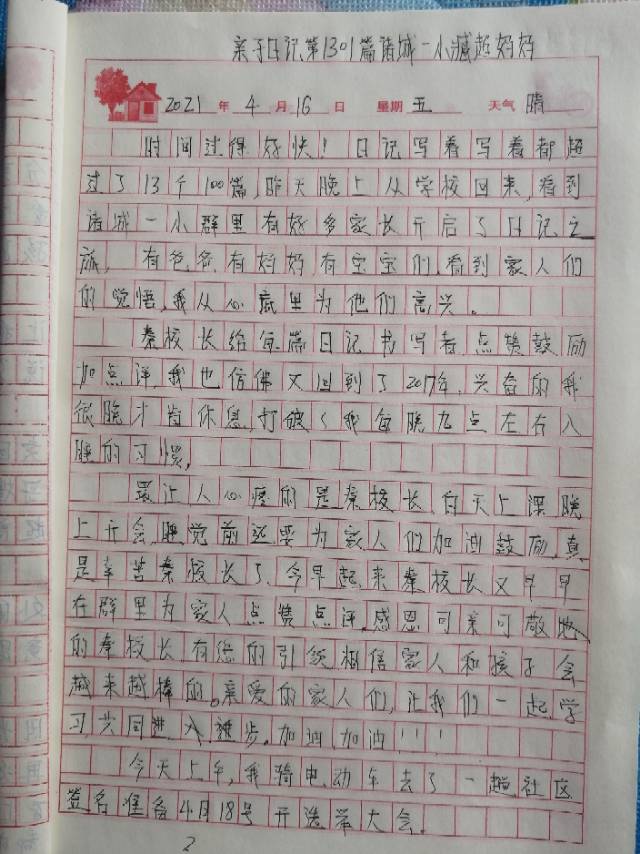 亲子日记第1301篇诸城一小臧超妈妈
2021 年 4 月 16 日 星期 五 天气 晴
时间过得好快！日记写着写着都超
过了13个100篇，昨天晚上从学校回来，看到
诸城一小群里有好多家长开启了日记之
旅，有爸爸有妈妈有宝宝们，看到家人们
的觉悟，我从心底里为他们高兴。
秦校长给每篇日记书写着点赞鼓励
加点评，我也仿佛又回到了2017年，兴奋的我
很晚才肯休息，打破了我每晚九点左右入
睡的习惯。
最让人心疼的是秦校长，白天上课晚
上开会，睡觉前还要为家人们加油鼓励，真
是辛苦秦校长了，今早起来秦校长又早早
在群里为家人点赞点评，感恩可亲可敬地
的秦校长，有您的引领相信家人和孩子会
越来越棒的。亲爱的家人们，让我们一起学
习，共同进入进步，加油加油！！！
今天上午，我骑电动车去了一趟社区
签名准备4月18号开选举大会。
2